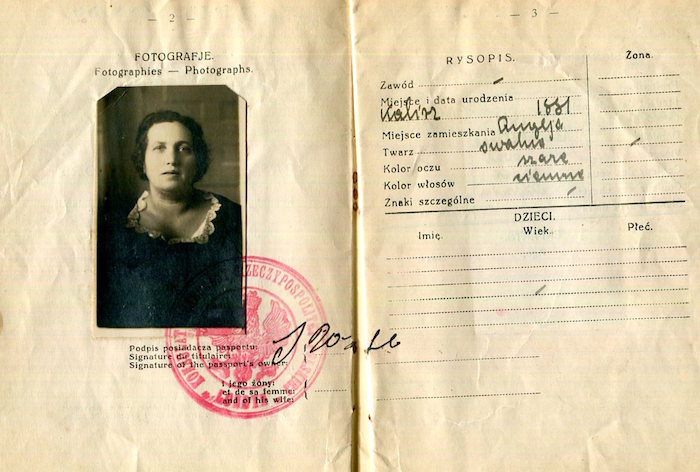 — 2 —
FOTOGRAFJE.
Fotographies — Photographs.
RZECZYPOSPOLITEJ
Podpis posiadacza pasportu:
Signature du titulaire:
Signature of the passport's owner:
i jego żony:
et de sa femme:
and of his wife:
— 3 —
RYSOPIS.
Żona.
Zawód
Miejsce i data urodzenia
Kalisz 1881
Miejsce zamieszkania Anglja
Twarz owalna
Kolor oczu szare
Kolor włosów ciemne
Znaki szczególne
DZIECI.
Imię. Wiek. Płeć.